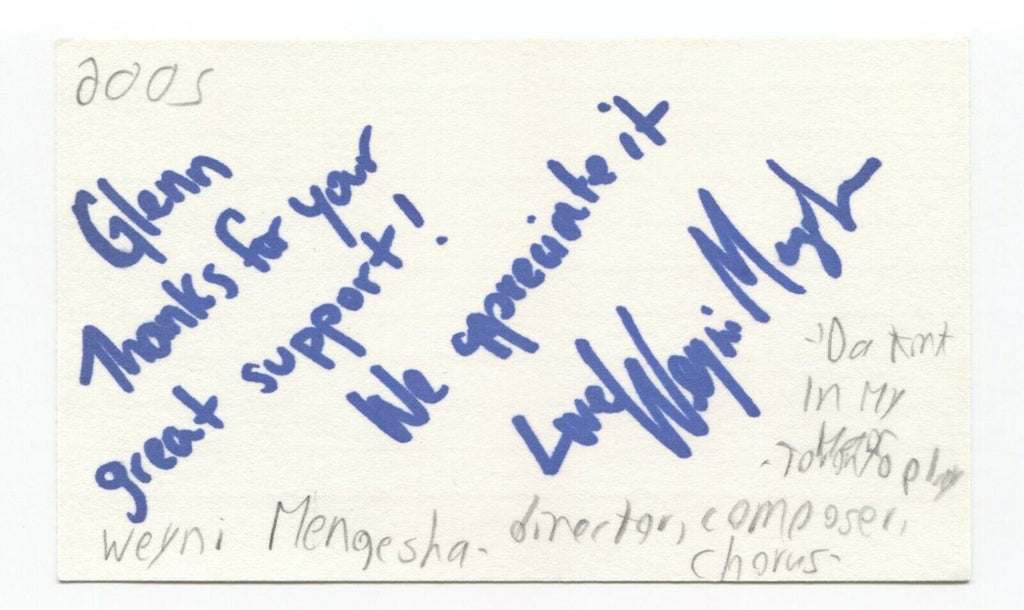 2005
Glenn
Thanks for your
great support!
We appreciate it
Love, Weyni M
Da
In My
Toronto play
Weyni Mengesha - director, composer,
chorus -